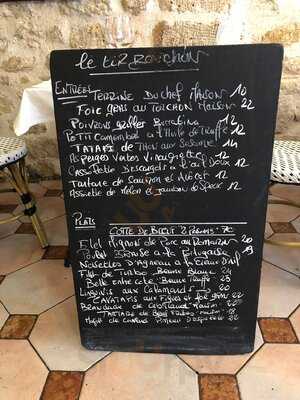 le tiRBouchon
ENTRÉES
TERRINE Du chef MAISON 10
FOIE GRAS au TORCHON Maison 22
POIVRONS griller Burratina 12
Petit Camembert a l'Huile de Truffe 12
TATAKI de Thon aux Sesame 14
Asperges Vertes Vinaigrette 12
Cassolette D'escargots a l'ail Doux 12
Tartare de Saumon et Avocat 12
Assiette de Melon et Jambon de Speck 12
PLATS
COTE DE BOEUF 2 Personnes 70
Filet Mignon de Porc au Romarin 20
Poulet a la Portugaise 19
Noisettes D'Agneau a la Creme D'ail
Filet de Turbo Beurre Blanc 24
Belle entre cote Beurre Truffe 25
Linguinis aux Calamars 20
CAVATAPIS aux Figues et foie gras 22
BRANDADE de Cabillaud Maison 22
TARTARE de Bœuf Frites Maison 18